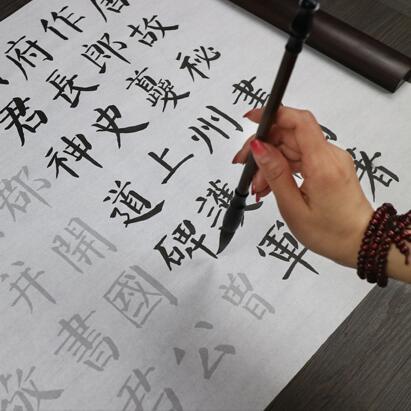 唐故秘書者
作郎夔州
府長史上護軍
君神道碑曾
郡開國公
并書君